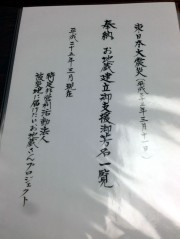 東日本大震災(平成二十三年三月十一日)
奉納 お地蔵建立御支援御芳名一覧
平成二十五年三月現在
特定非営利活動法人
被災地に届けたいお地蔵さんプロジェクト